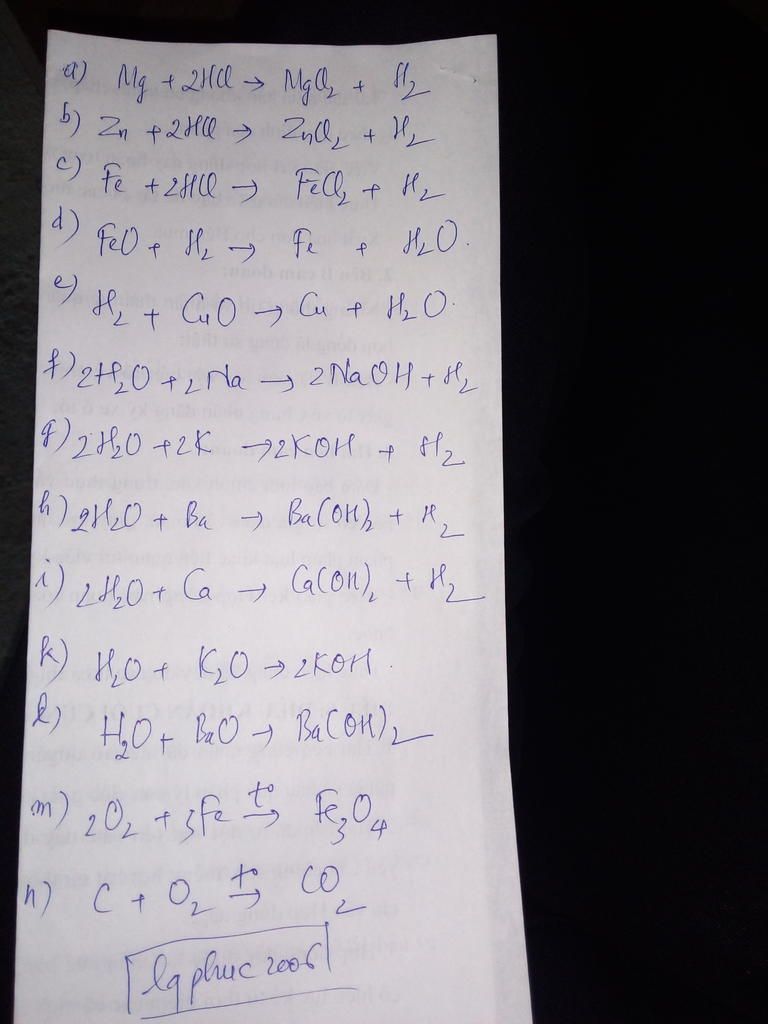 a) Mg + 2HCl → MgCl₂ + H₂
b) Zn + 2HCl → ZnCl₂ + H₂
c) Fe + 2HCl → FeCl₂ + H₂
d) FeO + H₂ → Fe + H₂O.
e) H₂ + CuO → Cu + H₂O.
f) 2H₂O + 2Na → 2NaOH + H₂
g) 2H₂O + 2K → 2KOH + H₂
h) 2H₂O + Ba → Ba(OH)₂ + H₂
i) 2H₂O + Ca → Ca(OH)₂ + H₂
k) H₂O + K₂O → 2KOH.
l) H₂O + BaO → Ba(OH)₂
m) 2O₂ + 3Fe t°→ Fe₃O₄
n) C + O₂ t°→ CO₂
lqphuc2006